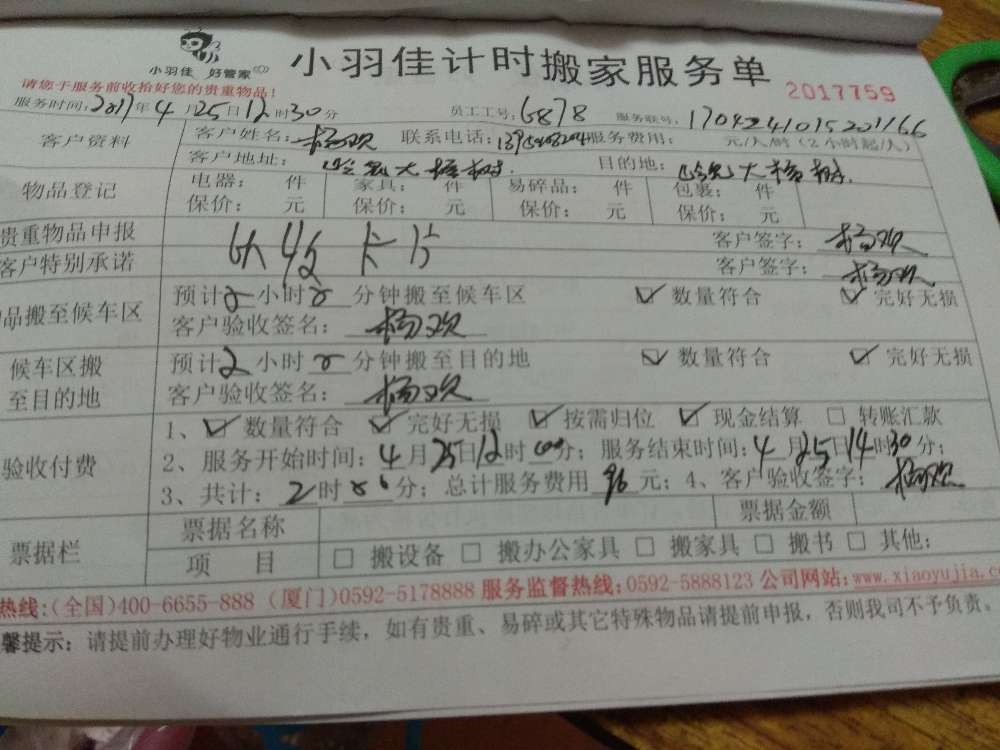 小羽佳 好管家
小羽佳计时搬家服务单
2017759
请您于服务前收拾好您的贵重物品！
服务时间：2017年4月25日12时30分 员工工号：6878 服务联号：
客户资料 客户姓名：杨欢 联系电话： 服务费用： 元/人/时（2小时起/人）
客户地址： 大杨树 目的地： 大杨树
物品登记 电器： 件 家具： 件 易碎品： 件 包裹： 件
保价： 元 保价： 元 保价： 元 保价： 元
贵重物品申报 客户签字：杨欢
客户特别承诺 客户签字：杨欢
品搬至候车区 预计2小时 分钟搬至候车区 ☑ 数量符合 ☑ 完好无损
客户验收签名：杨欢
候车区搬至目的地 预计2小时 分钟搬至目的地 ☑ 数量符合 ☑ 完好无损
客户验收签名：杨欢
验收付费 1、☑ 数量符合 ☑ 完好无损 ☑ 按需归位 ☑ 现金结算 □ 转账汇款
2、服务开始时间：4月25日12时 分；服务结束时间：4月25日14时30分；
3、共计：2时 分；总计服务费用 96 元；4、客户验收签字：杨欢
票据栏 票据名称 票据金额
项 目 □ 搬设备 □ 搬办公家具 □ 搬家具 □ 搬书 □ 其他：
热线：(全国)400-6655-888 (厦门)0592-5178888 服务监督热线：0592-5888123 公司网站：www.xiaoyujia.co
馨提示：请提前办理好物业通行手续，如有贵重、易碎或其它特殊物品请提前申报，否则我司不予负责。